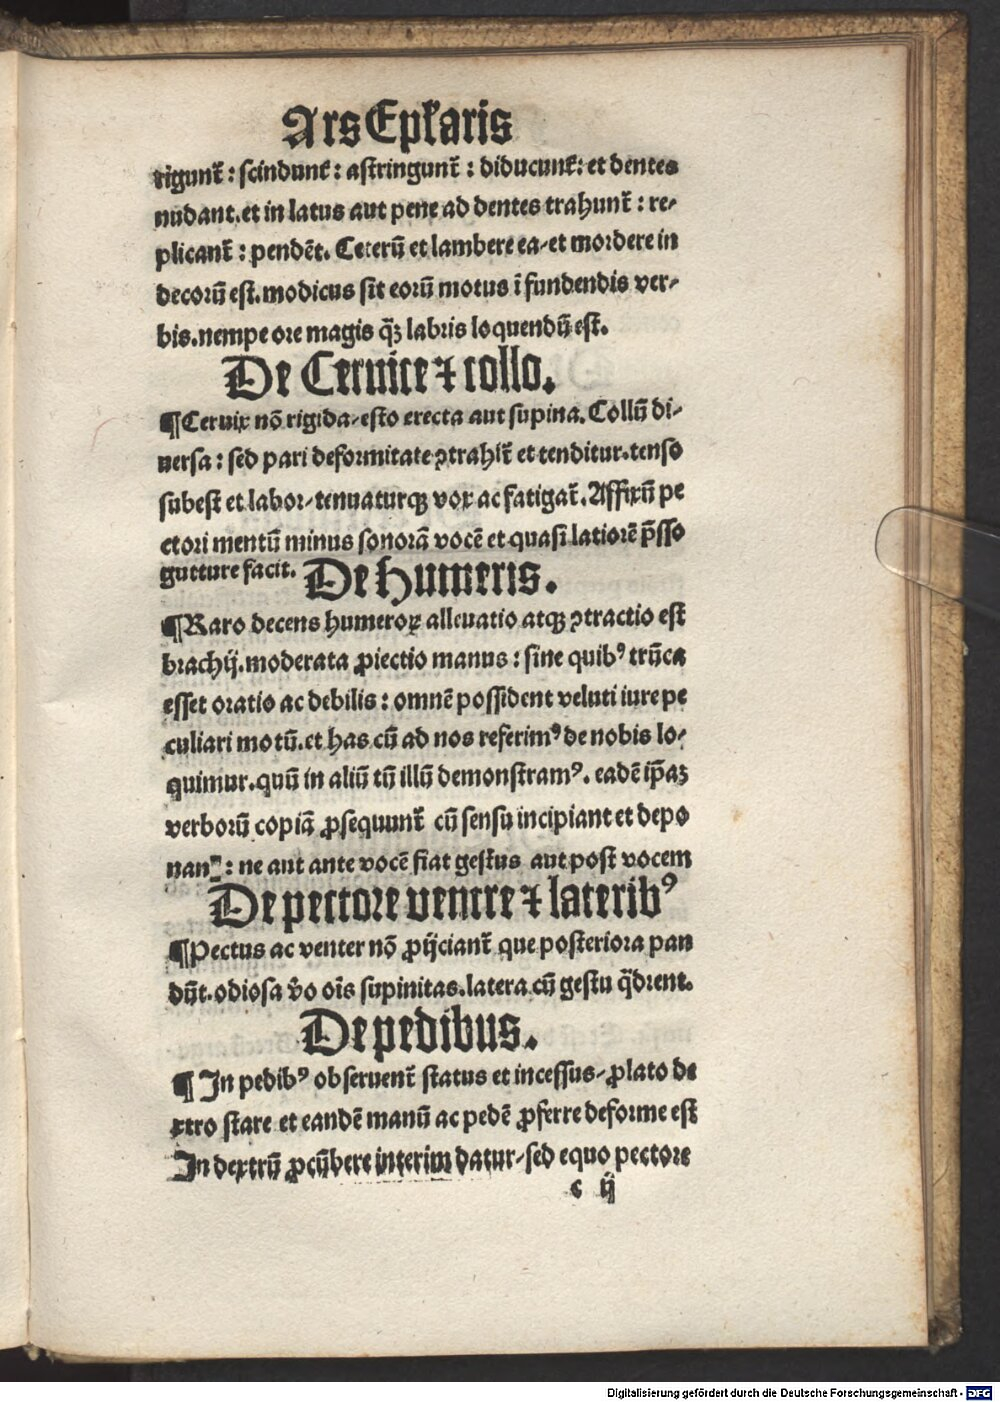 Ars Eplaris
rigunt᷑: scindunt᷑: astringunt᷑: diducunt᷑: et dentes
nudant. et in latus aut pene ad dentes trahunt᷑: re-
plicant᷑: pendēt. Ceterū et lambere ea-et mordere in
decorū est. modicus sit eorū motus ī fundendis ver-
bis. nempe ore magis q̄ꝫ labris loquendū est.
De Ceruice ⁊ collo.
¶Ceruix nō rigida-esto erecta aut supina. Collū di-
uersa: sed pari deformitate ꝯtrahit᷑ et tenditur. tenso
subest et labor-tenuaturqꝫ vox ac fatigat᷑. Affixū pe
ctori mentū minus sonorā vocē et quasi latiorē p̄sso
gutture facit.
De humeris.
¶Raro decens humeroꝝ alleuatio atqꝫ ꝯtractio est
brachij. moderata ꝓiectio manus: sine quibꝰ trūca
esset oratio ac debilis: omnē possident veluti iure pe
culiari motū. et has cū ad nos referimꝰ de nobis lo-
quimur. quū in aliū tū illū demonstramꝰ. eadē ip̄az
verborū copiā ꝓsequunt᷑ cū sensu incipiant et depo
nant᷑: ne aut ante vocē fiat gestus aut post vocem
De pectore ventre ⁊ lateribꝰ
¶Pectus ac venter nō ꝓijciant᷑ que posteriora pan
dūt. odiosa v̄o oīs supinitas. latera cū gestu q̄drent.
De pedibus.
¶ In pedibꝰ obseruent᷑ status et incessus-ꝓlato de
xtro stare et eandē manū ac pedē ꝓferre deforme est
In dextrū ꝓcūbere interim datur-sed equo pectore
c ij
Digitalisierung gefördert durch die Deutsche Forschungsgemeinschaft - DFG